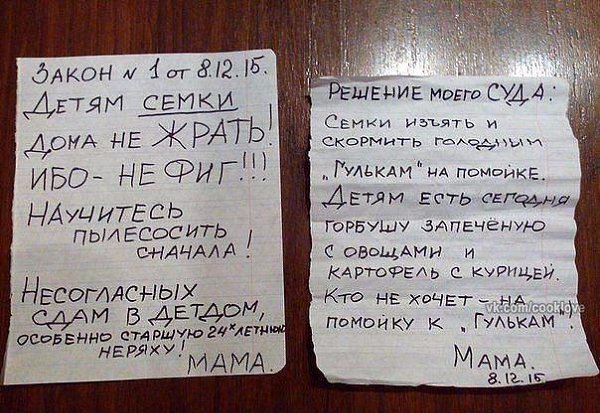 ЗАКОН N 1 от 8.12.15.
ДЕТЯМ СЕМКИ
ДОМА НЕ ЖРАТЬ!
ИБО - НЕ ФИГ!!!
НАУЧИТЕСЬ
ПЫЛЕСОСИТЬ
СНАЧАЛА!
НЕСОГЛАСНЫХ
СДАМ В ДЕТДОМ,
ОСОБЕННО СТАРШУЮ 24х ЛЕТНЮЮ
НЕРЯХУ!
МАМА.
РЕШЕНИЕ МОЕГО СУДА:
СЕМКИ ИЗЪЯТЬ И
СКОРМИТЬ ГОЛОДНЫМ
„ГУЛЬКАМ" НА ПОМОЙКЕ.
ДЕТЯМ ЕСТЬ СЕГОДНЯ
ГОРБУШУ ЗАПЕЧЁНУЮ
С ОВОЩАМИ И
КАРТОФЕЛЬ С КУРИЦЕЙ.
КТО НЕ ХОЧЕТ - НА
ПОМОЙКУ К „ГУЛЬКАМ".
МАМА.
8.12.15
vk.com/cooklove